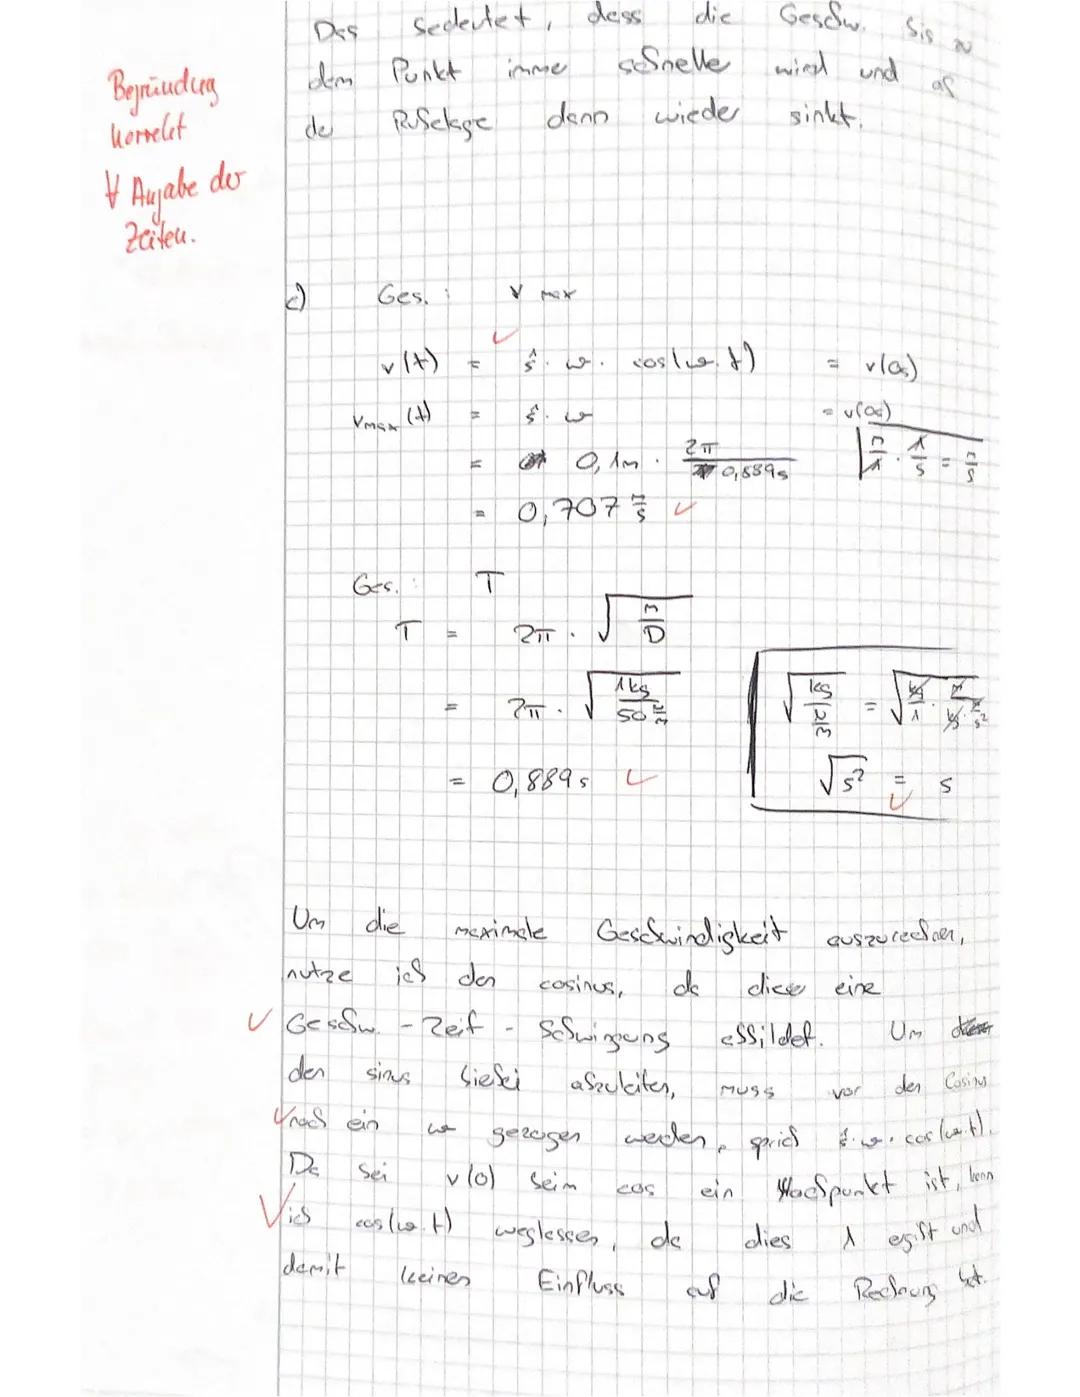 Das bedeutet, dass die Geschw. bis zu
dem Punkt imme schnelle wird und ab
de Ruhelage dann wieder sinkt.
Begründung
korrekt
∀ Angabe der
Zeiten.
c) Ges.: v max
v(t) = ŝ · ω · cos(ω · t) = v(0s)
vmax (t) = ŝ · ω = v(0s)
= 0,1m · 2π / 0,889s m/1 · 1/s = m/s
= 0,707 m/s
Ges.: T
T = 2π · √(m/D)
= 2π · √(1kg / 50 N/m) √(kg / N/m) = √(kg/1 · m / kg · m/s²)
= 0,889s √s² = s
Um die maximale Geschwindigkeit auszurechnen,
nutze ich den cosinus, da diese eine
Geschw. - Zeit - Schwingung abbildet. Um
den sinus hiebei abzuleiten, muss vor den Cosinus
noch ein ω gezogen werden, sprich ŝ · ω · cos(ω·t).
Da bei v(0) beim cos ein Hochpunkt ist, kann
ich cos(ω·t) weglassen, da dies 1 egibt und
damit keinen Einfluss auf die Rechnung hat.